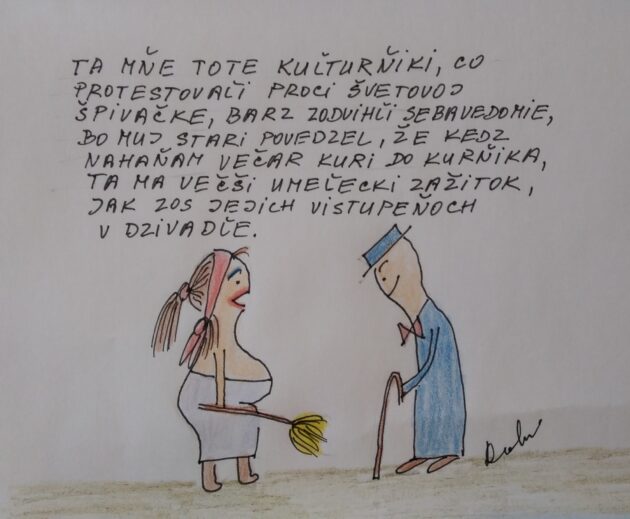 TA MŇE TOTE KULTURŇIKI, CO
PROTESTOVAĽI PROCI ŠVETOVOJ
ŠPIVAČKE, BARZ ZODVIHĽI SEBAVEDOMIE,
BO MUJ STARI POVEDZEL, ŽE KEDZ
NAHAŇAM VEČAR KURI DO KURŇIKA,
TA MA VEČŠI UMEĽECKI ZAŽITOK,
JAK ZOS JEJICH VISTUPEŇOCH
V DZIVADĽE.